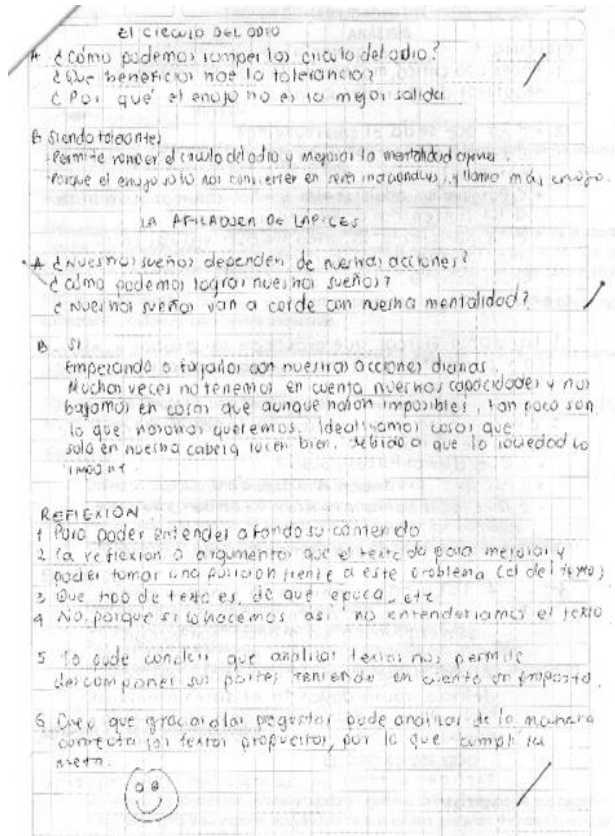 El CIRCULO DEL ODIO
A ¿Cómo podemos romper los circulo del odio?
¿Que beneficios nos la tolerancia?
¿Por qué el enojo no es la mejor salida
B Siendo tolerantes
Permite romper el circulo del odio y mejorar la mentalidad ajena.
Porque el enojo solo nos convierten en seres, y llama más enojo.
LA AFILADORA DE LAPICES
A ¿Nuestros sueños dependen de nuestras acciones?
¿cómo podemos lograr nuestros sueños?
¿Nuestros sueños van a corde con nuestra mentalidad?
B SI
Empezando a forjarlos con nuestras acciones diarias.
Muchas veces no tenemos en cuenta nuestras capacidades y nos
bajamos en cosas que aunque no son imposibles, tan poco son
lo que nosotros queremos. Idealizamos cosas que
solo en nuestra cabeza lucen bien, debido a que la sociedad lo
impone.
REFLEXIÓN
1 Para poder entender a fondo su contenido
2 la reflexion o argumentos que el texto da para mejorar y
poder tomar una posicion frente a este problema (el del texto)
3 Que tipo de texto es, de que epoca, etc
4 No, porque si lo hacemos asi no entenderiamos el texto
5 Yo pude concluir que analizar textos nos permite
descomponer sus partes teniendo en cuenta un proposito.
6 Creo que gracias a las preguntas pude analizar de la manera
correcta los textos propuestos, por lo que cumpli su
meta.